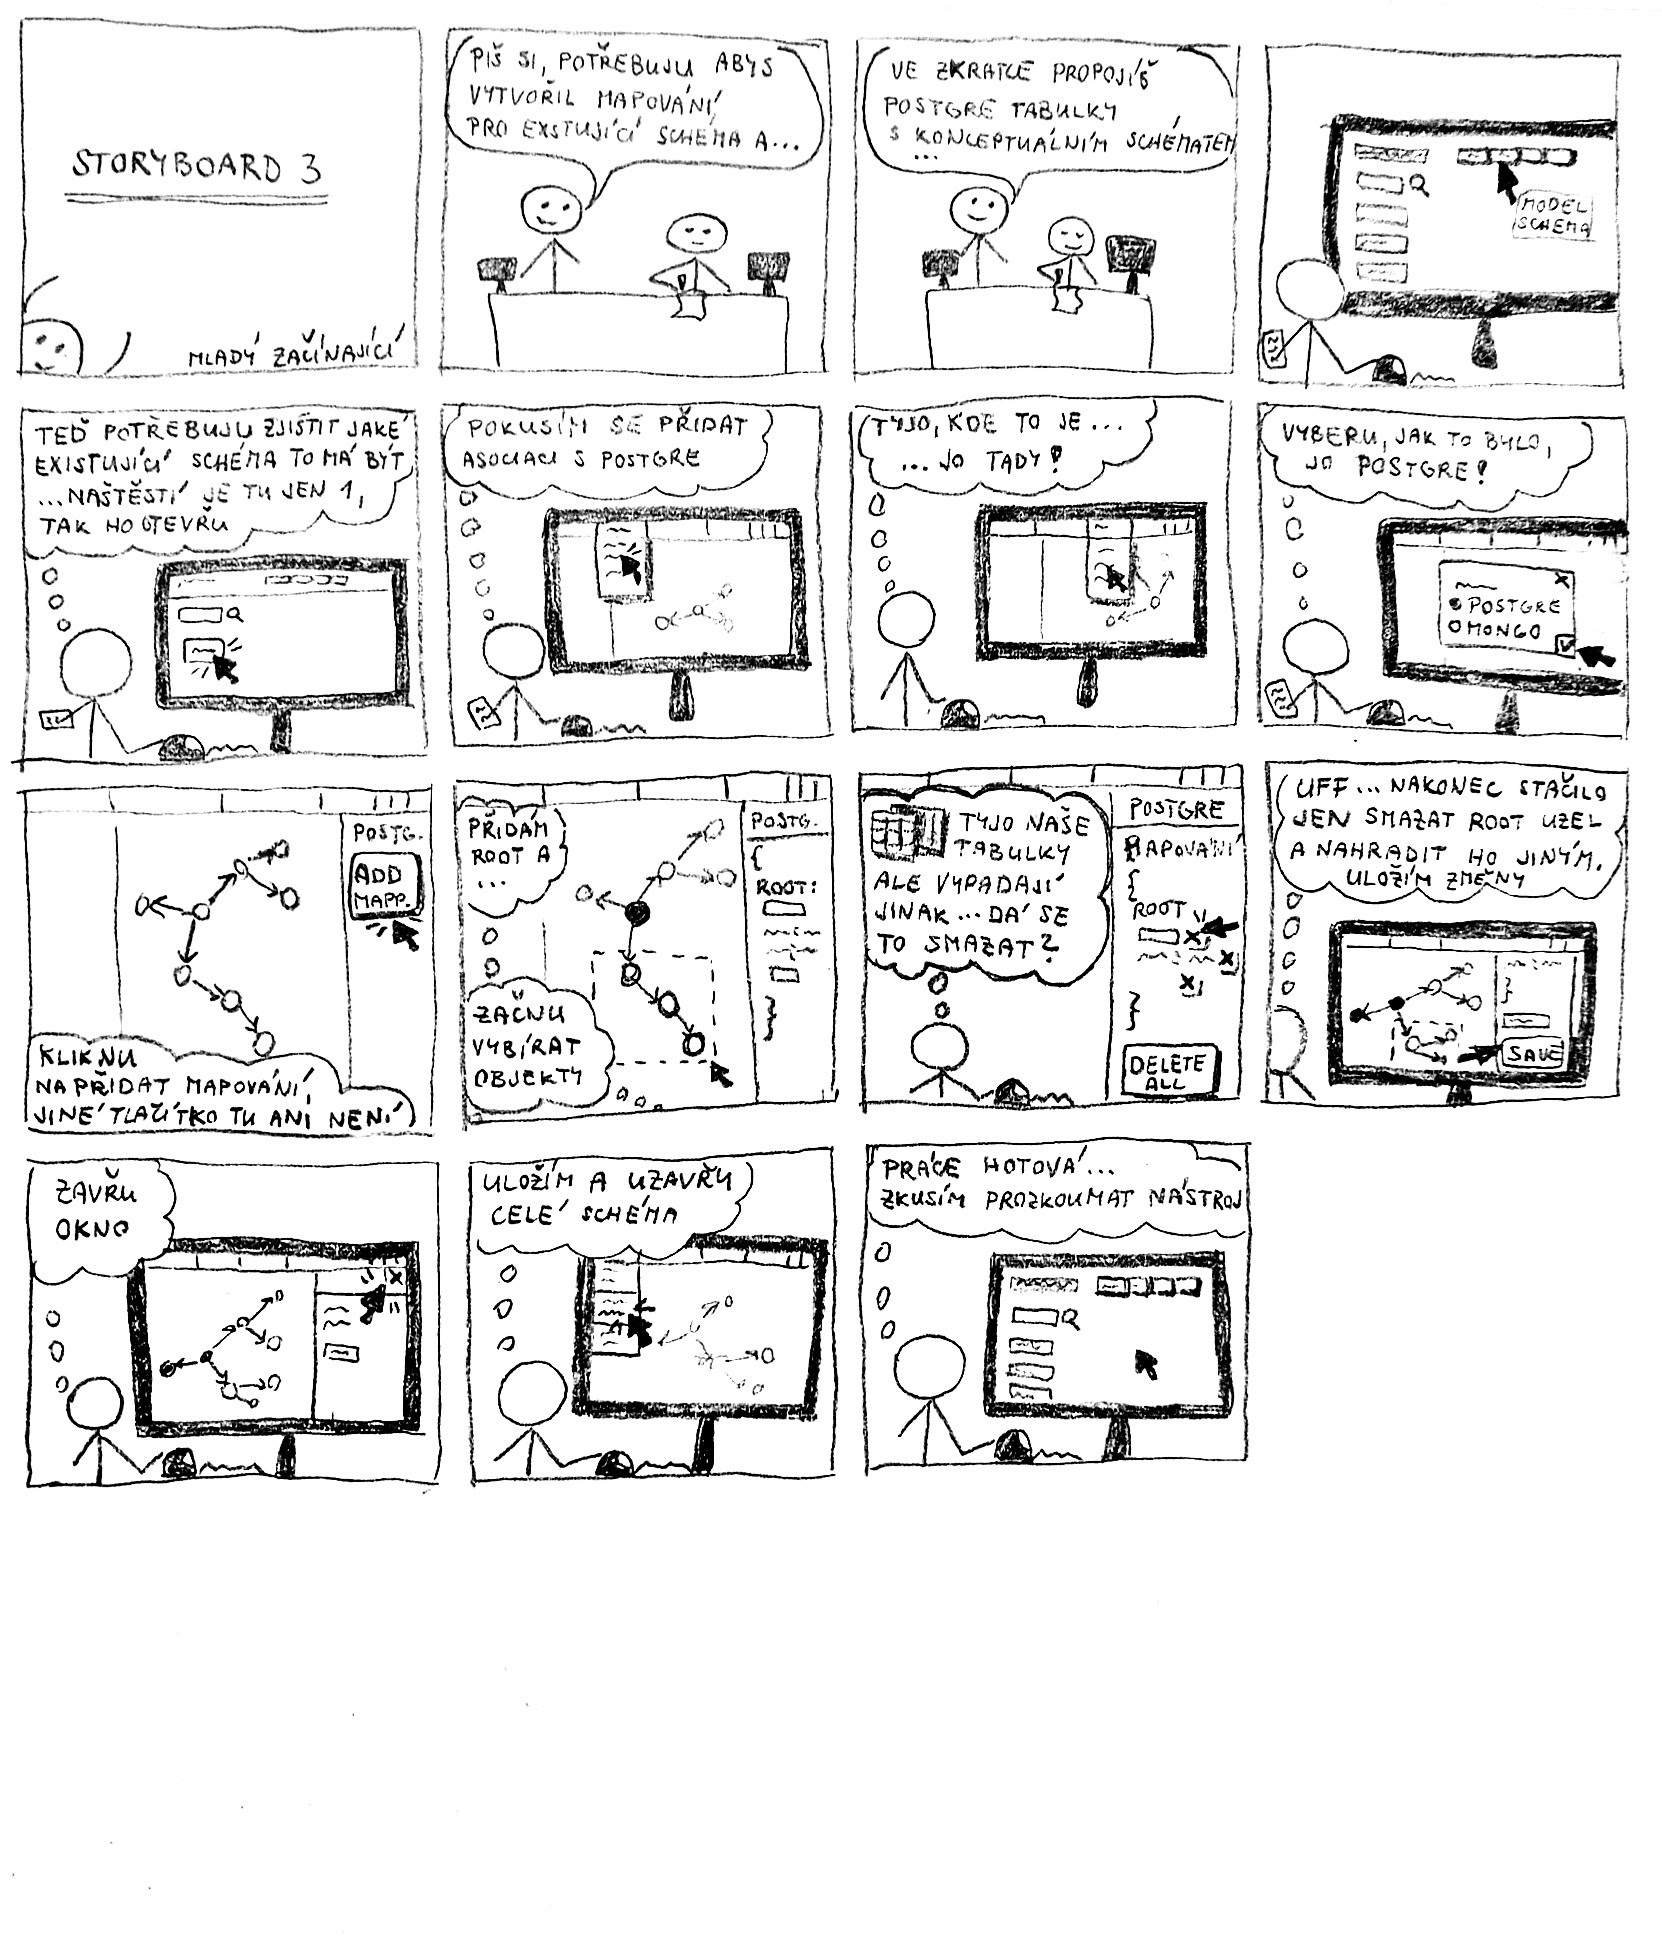 STORYBOARD 3
MLADÝ ZAČÍNAJÍCÍ
PIŠ SI, POTŘEBUJU ABYS
VYTVOŘIL MAPOVÁNÍ,
PRO EXSTUJÍCÍ SCHÉMA A...
VE ZKRATCE PROPOJÍŠ
POSTGRE TABULKY
S KONCEPTUÁLNÍM SCHÉMATEM
...
MODEL
SCHEMA
TEĎ POTŘEBUJU ZJIŠTIT JAKÉ
EXISTUJÍCÍ SCHÉMA TO MÁ BÝT
...NAŠTĚSTÍ JE TU JEN 1,
TAK HO OTEVŘU
POKUSÍM SE PŘIDAT
ASOCIACI S POSTGRE
TYJO, KDE TO JE...
...JO TADY!
VYBERU, JAK TO BYLO,
JO POSTGRE!
POSTGRE
MONGO
POSTG.
ADD
MAPP.
KLIKNU
NA PŘIDAT MAPOVÁNÍ,
JINÉ TLAČÍTKO TU ANI NENÍ
PŘIDÁM
ROOT A
...
ZAČNU
VYBÍRAT
OBJEKTY
POSTG.
{
ROOT:
}
TYJO NAŠE
TABULKY
ALE VYPADAJÍ
JINAK... DÁ SE
TO SMAZAT?
POSTGRE
MAPOVÁNÍ
{
ROOT
}
DELETE
ALL
UFF... NAKONEC STAČILO
JEN SMAZAT ROOT UZEL
A NAHRADIT HO JINÝM.
ULOŽÍM ZMĚNY
}
SAVE
ZAVŘU
OKNO
ULOŽÍM A UZAVŘU
CELÉ SCHÉMA
PRÁCE HOTOVÁ...
ZKUSÍM PROZKOUMAT NÁSTROJ